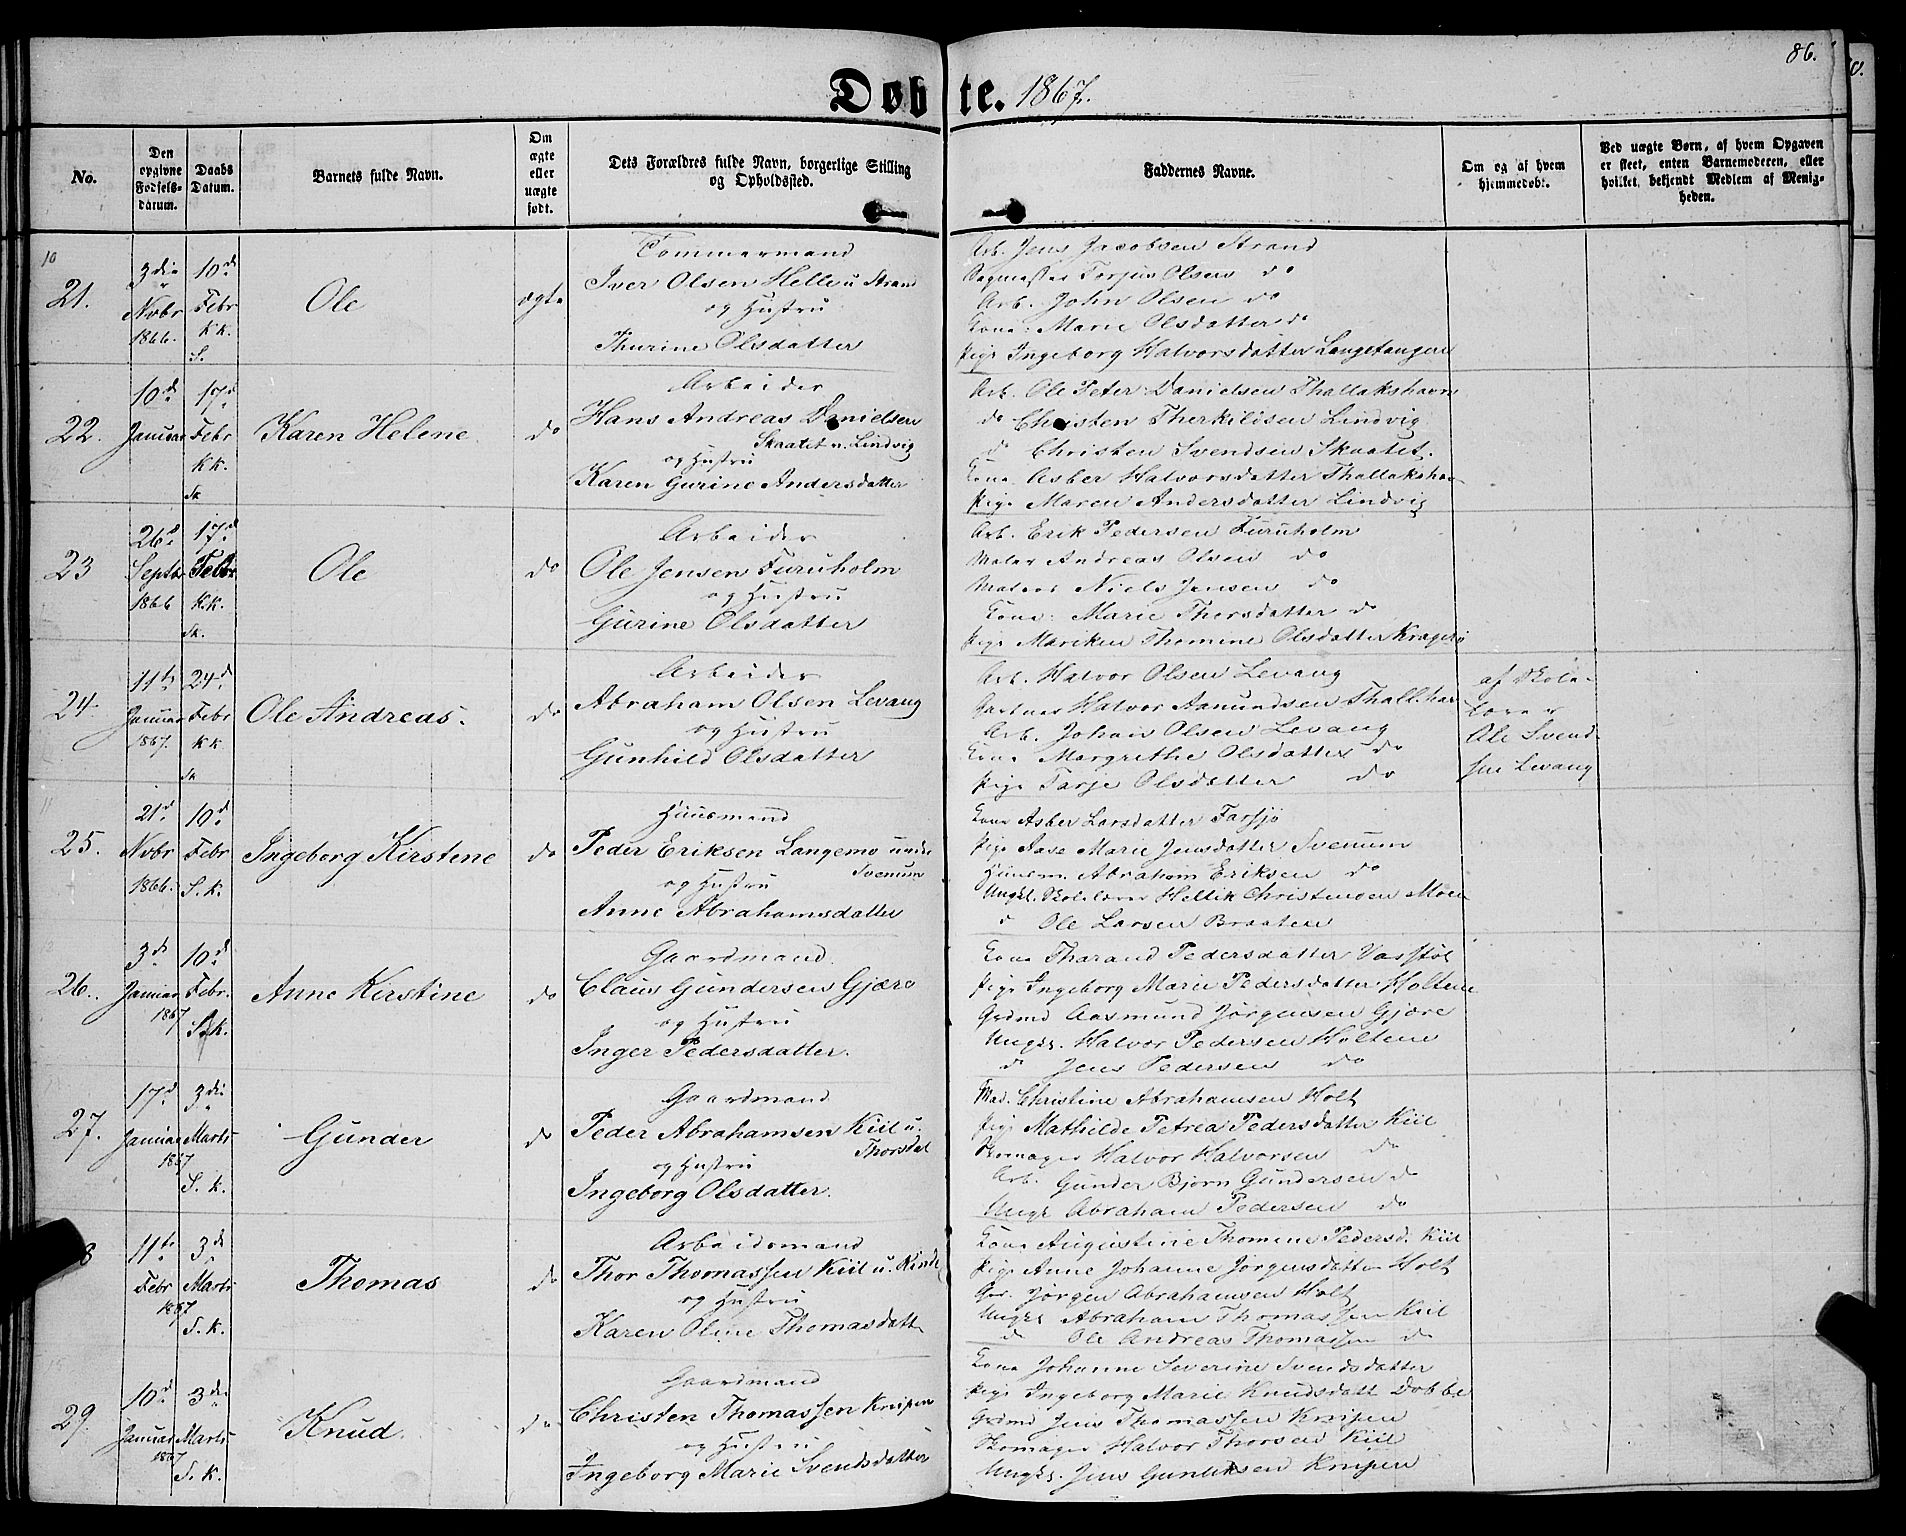 86.
Døbte. 1867.
No.
Den opgivne Fødselsdatum.
Daabs Datum.
Barnets fulde Navn.
Om ægte eller uægte født.
Dets Forældres fulde Navn, borgerlige Stilling og Opholdssted.
Faddernes Navne.
Om og af hvem hjemmedøbt.
Ved uægte Børn, af hvem Opgaven er skeet, enten Barnemoderen, eller hvilket bekjendt Medlem af Menigheden.
21.
3die Novbr 1866.
10d Febr KK. S.
Ole
ægte
Tømmermand
Iver Olsen Helle u Strand
og Hustru
Thurine Olsdatter
Arb. Jens Jacobsen Strand
Sagmester Torjus Olsen do
Arb. John Olsen do
Kone: Marie Olsdatter do
Pige Ingeborg Halvorsdatter Langetangen
22.
10d Januar
17d Febr KK. Sk
Karen Helene
do
Arbeider
Hans Andreas Danielsen
Skaatet u. Lindvig
og Hustru
Karen Gurine Andersdatter
Arb. Ole Peter Danielsen Thallakshavn
do Christen Therkildsen Lindvig
d Christen Svendsen Skaatet.
Kone Asber Halvorsdatter Thallakshavn
Pige Maren Andersdatter Lindvig
23
26d Septb 1866
17d Febr K.K. Sk.
Ole
do
Arbeider
Ole Jensen Furuholm
og Hustru
Gurine Olsdatter
Arb. Erik Pedersen Furuholm
Matr Andreas Olsen do
Matros Niels Jensen do
Kone: Marie Thorsdatter do
Pige Mariken Thomine Olsdatter Kragerø
24.
11te Januar 1867.
24d Febr KK Sk
Ole Andreas.
do
Arbeider
Abraham Olsen Levang
og Hustru
Gunhild Olsdatter
Arb. Halvor Olsen Levang
Gartner Halvor Aamundsen Thall.hav
Arb. Johan Olsen Levang
Kone Margrethe Olsdatter do
Pige Tarje Olsdatter do
af Skole-
lærer
Ole Svend-
sen Levang
25.
21d Novbr 1866.
10d Febr S.K.
Ingeborg Kirstene
do
Huusmand
Peder Eriksen Langemo under
Svenum
og Hustru
Anne Abrahamsdatter
Kone Asber Larsdatter Farsjø
Pige Aase Marie Jensdatter Svenum
Huusm. Abraham Eriksen do
Ungk. Skolelærer Hellik Christensen Moen
d Ole Larsen Braaten
26.
3d Januar 1867
10d Febr. S.k.
Anne Kirstine
do
Gaardmand.
Claus Gundersen Gjære
og Hustru
Inger Pedersdatter.
Kone Tharand Pedersdatter Vasstøl
Pige Ingeborg Marie Pedersdatter Holtene
Grdmd Aasmund Jørgensen Gjære
Ungk. Halvor Pedersen Holtene
d Jens Pedersen do
27.
17d Januar 1867
3die Marts S.k.
Gunder
do
Gaardmand
Peder Abrahamsen Kiil u.
Thorsdal
og Hustru
Ingeborg Olsdatter.
Mad. Christine Abrahamsen Holt
Pige Mathilde Petrea Pedersdatter Kiil
Skomager Halvor Halvorsen do
Arb. Gunder Bjørn Gundersen do
Ungk Abraham Pedersen do
8
11te Febr 1867
3d Marts S.k.
Thomas
do
Arbeidsmand
Thor Thomassen Kiil u. Rinde
og Hustru
Karen Oline Thomasdatt
Kone Augustine Thomine Pedersd. Kiil
Pige Anne Johanne Jørgensdatter Holt
Jørgen Abrahamsen Holt
Ungk Abraham Thomassen Kiil
d Ole Andreas Thomassen do
29.
10d Januar 1867
3die Marts S.k.
Knud.
do
Gaardmand
Christen Thomassen Knipen
og Hustru
Ingeborg Marie Svendsdatter
Kone Johanne Severine Svendsdatter
Pige Ingeborg Marie Knudsdatt Dobbe
Grdmd Jens Thomassen Knipen
Skomager Halvor Thorsen Kiil
Ungk. Jens Gunleksen Knipen